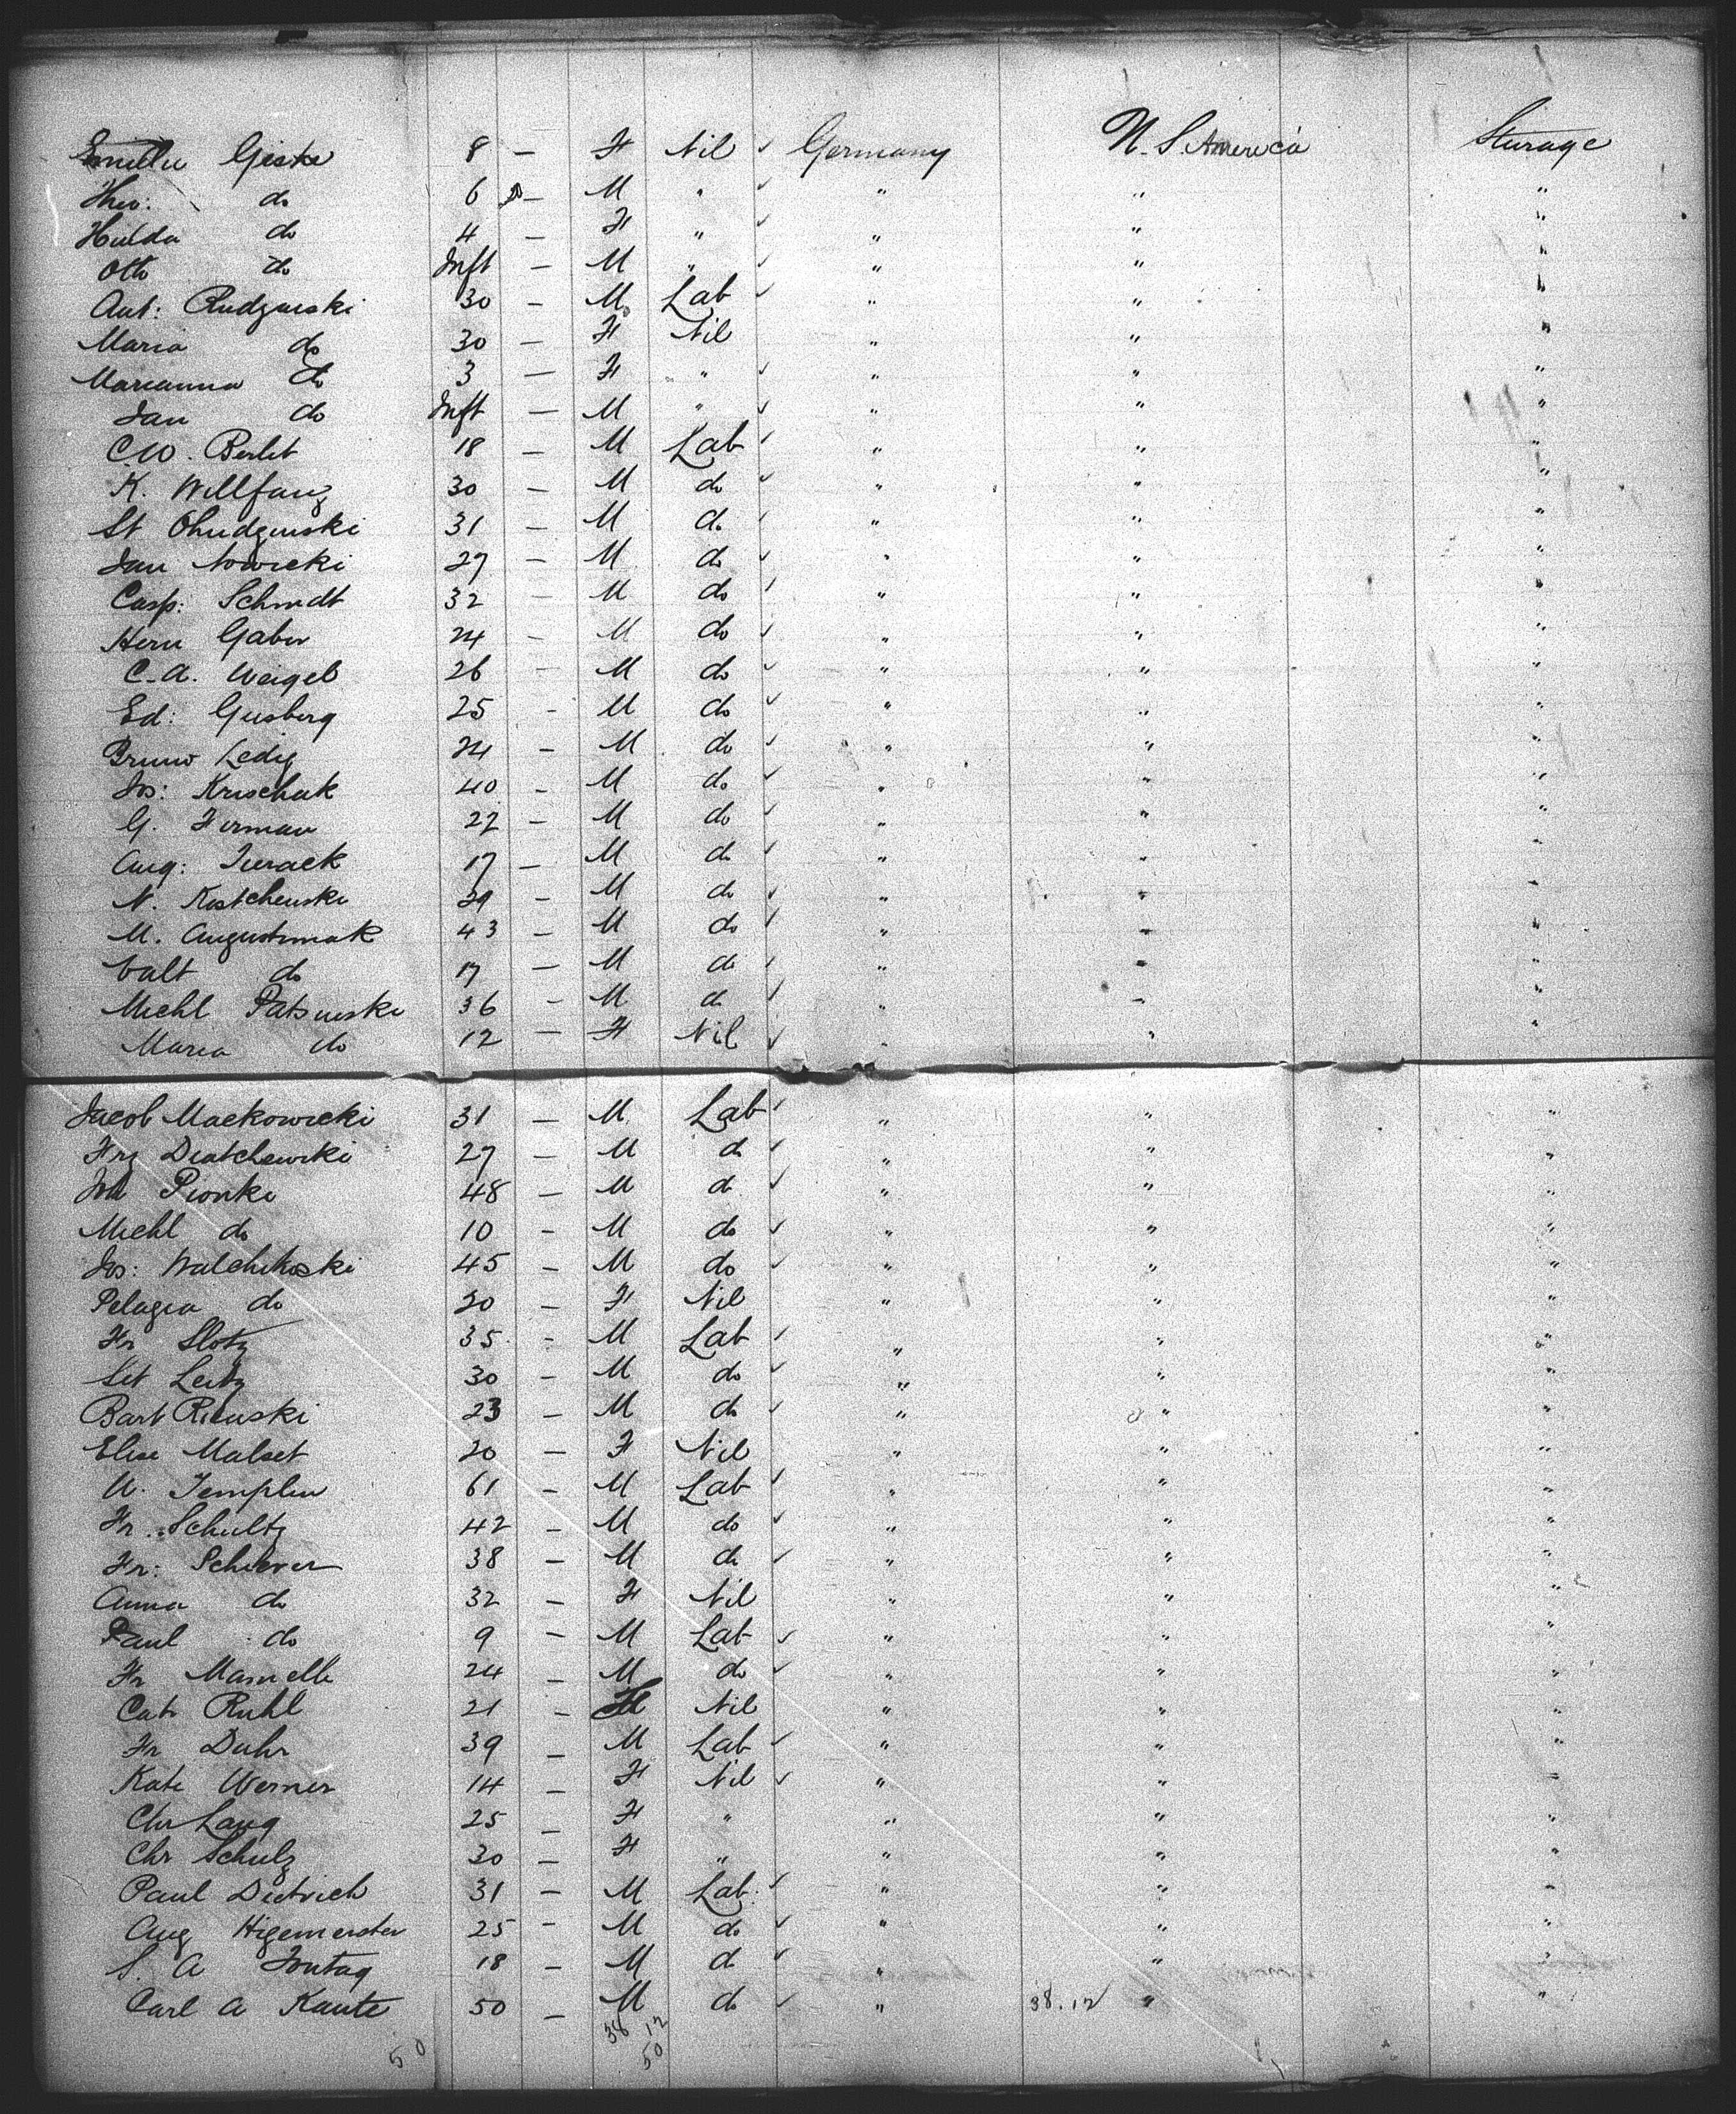 Emilie Giske 8 — F Nil ✓ Germany U. S. America Sturage
Theo: do 6 — M " ✓ " " "
Hulda do 4 — F " ✓ " " "
Otto do Inft — M " ✓ " " "
Ant: Rudzinski 30 — M Lab ✓ " " "
Maria do 30 — F Nil " " "
Marianna do 3 — F " ✓ " " "
Jan do Inft — M " ✓ " " "
C.W. Berlet 18 — M Lab ✓ " " "
K. Willfang 30 — M do ✓ " " "
St Chudzinski 31 — M do ✓ " " "
Jan Nowicki 27 — M do ✓ " " "
Casp: Schmdt 32 — M do ✓ " " "
Herm Gaber 24 — M do ✓ " " "
C. A. Weigel 26 — M do ✓ " " "
Ed: Gusberg 25 — M do ✓ " " "
Bruno Ledig 24 — M do ✓ " " "
Jos: Krischak 40 — M do ✓ " " "
G. Firman 22 — M do ✓ " " "
Aug: Turack 17 — M do ✓ " " "
N. Kostchenski 29 — M do ✓ " " "
M. Augustinak 43 — M do ✓ " " "
Valt do 17 — M do ✓ " " "
Michl Patsinski 36 — M do ✓ " " "
Maria do 12 — F Nil ✓ " " "
Jacob Mackowicki 31 — M Lab ✓ " " "
Frz Diatchewski 27 — M do ✓ " " "
Joh Pionki 48 — M do ✓ " " "
Michl do 10 — M do ✓ " " "
Jos: Walchikoski 45 — M do ✓ " " "
Pelagia do 20 — F Nil " " "
Fr Slotz 35 — M Lab ✓ " " "
Leitz 30 — M do ✓ " " "
Bart Rienski 23 — M do ✓ " " "
Elise Malset 20 — F Nil " " "
W. Templin 61 — M Lab ✓ " " "
Fr. Schultz 42 — M do ✓ " " "
Fr: Schiever 38 — M do ✓ " " "
Anna do 32 — F Nil " " "
Paul do 9 — M Lab ✓ " " "
Fr Mamelle 24 — M do ✓ " " "
Cath Ruhl 21 — F Nil " " "
Fr Duhr 39 — M Lab ✓ " " "
Kate Werner 14 — F Nil ✓ " " "
Chr Lang 25 — F " " " "
Chr Schulz 30 — F " " " "
Paul Dietrich 31 — M Lab ✓ " " "
Aug Higemerster 25 — M do ✓ " " "
S. A Sontag 18 — M do ✓ " " "
Carl A Kaute 50 — M do ✓ " 38.12 " "
38 12
50 50